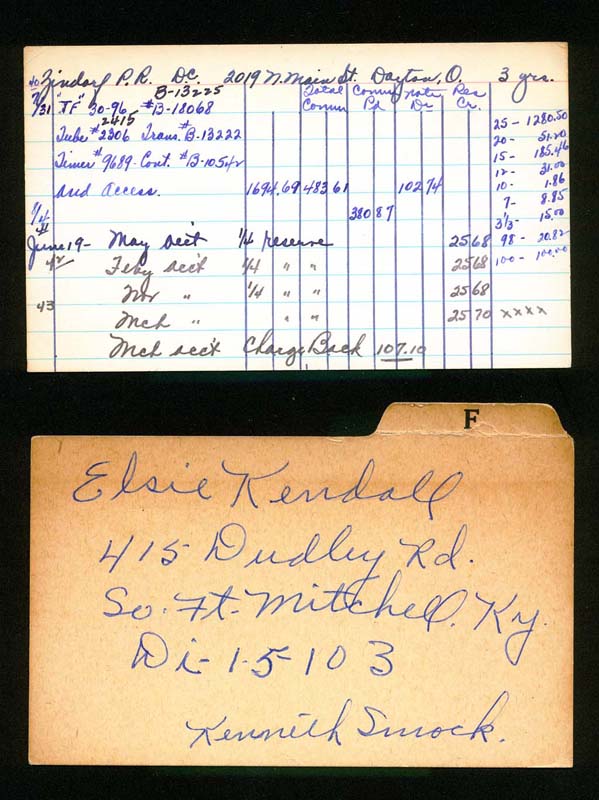 40 Zindorf P.R. D.C. 2019 N. Main St. Dayton, O. 3 yrs.
B-13225
Total Comm Notes Res
Comm Pd Dr Cr.
7/31 "TF" 30-96 #B-18068
2415
Tube #2306 Trans. #B-13222
Timer #9689- Cont. #B-10542
and access. 1694.69 483 61 102 74
25 - 1280.50
20 - 51.20
15 - 185.46
12 - 31.00
10 - 1.86
7 - 8.85
3⅓ - 15.00
98 - 20.82
100 - 100.00
1/4 380 87
41
June 19 - May acc't 1/4 reserve 25 68
42 Feby acc't 1/4 " " 25 68
Nov " 1/4 " " 25 68
43 Mch " " " 25 70 xxxx
Mch acc't Charge Back 107.10
F
Elsie Kendall
415 Dudley Rd.
So. Ft. Mitchell, Ky.
Di-1-5103
Kenneth Smock.